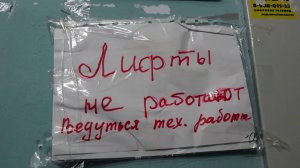 Лифты
не работают
Ведуться тех. работы